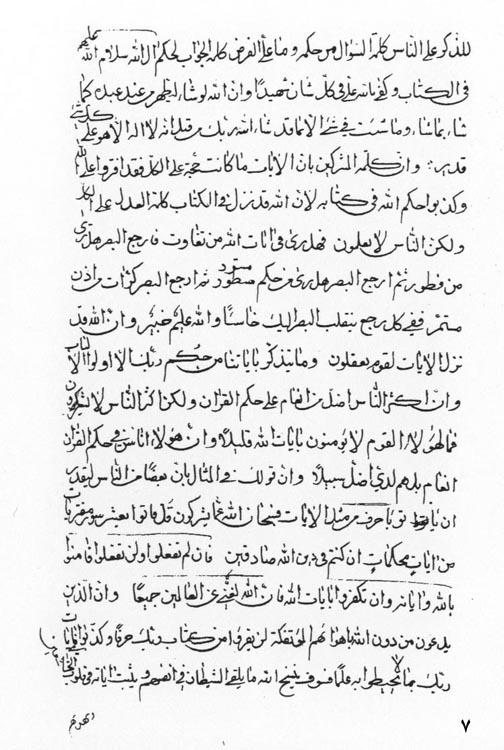 للذكر على الناس كلمة السؤال من حكمه وما على الفرض كلمة الجواب لحكم الله سلام الله عليهم
في الكتاب وكفى بالله على في كل شان شهيدا وان الله لو شاء ليظهر من عند عبده كما
شاء بما شاء وما شئت في شيء الا بما قد شاء الله ربك من قبل انه لا اله الا هو على كل شيء
قدير وان كلمة المشركين بان الايات ما كانت حجة على الكل فقد افتروا على الله
وكذبوا حكم الله في كتابه لان الله قد نزل في الكتاب كلمة العدل على الكل
ولكن الناس لا يعلمون فهل ترى في ايات الله من تفاوت فارجع البصر هل ترى
من فطور ثم ارجع البصر هل ترى من حكم مسطور ثم ارجع البصر كرات من اذن
مستمر ففي كل رجع ينقلب البصر اليك خاسئا والله عليم خبير وان الله قد
نزل الايات لقوم يعقلون وما يتذكر باياتنا من حكم ربك الا اولوا الالباب
وان اكثر الناس اضل من انعام على حكم القران ولكن اكثر الناس لا يشكرون
فما لهؤلاء القوم لا يؤمنون بايات الله قليلا وان هؤلاء اناس في حكم القران
انعام بل هم لدي اضل سبيلا وان قولك في المثال بان بعضا من الناس ليقدر
ان ياتوا باحرف مثل الايات فسبحان الله عما يشركون قل فاتوا بعشر سور مفتريات
من ايات محكمات ان كنتم في دين الله صادقين فان لم تفعلوا ولن تفعلوا فامنوا
بالله واياته وان تكفروا بايات الله فان الله لغني عن العالمين جميعا وان الذين
يدعون من دون الله باهوائهم لن يفروا من كتاب ربك حرفا وكذبوا بايات
ربك مما لا يحيطوا به علما فسوف ينسخ الله ما يلقي الشيطان في انفسهم ويثبت اياته في قلوب
٧